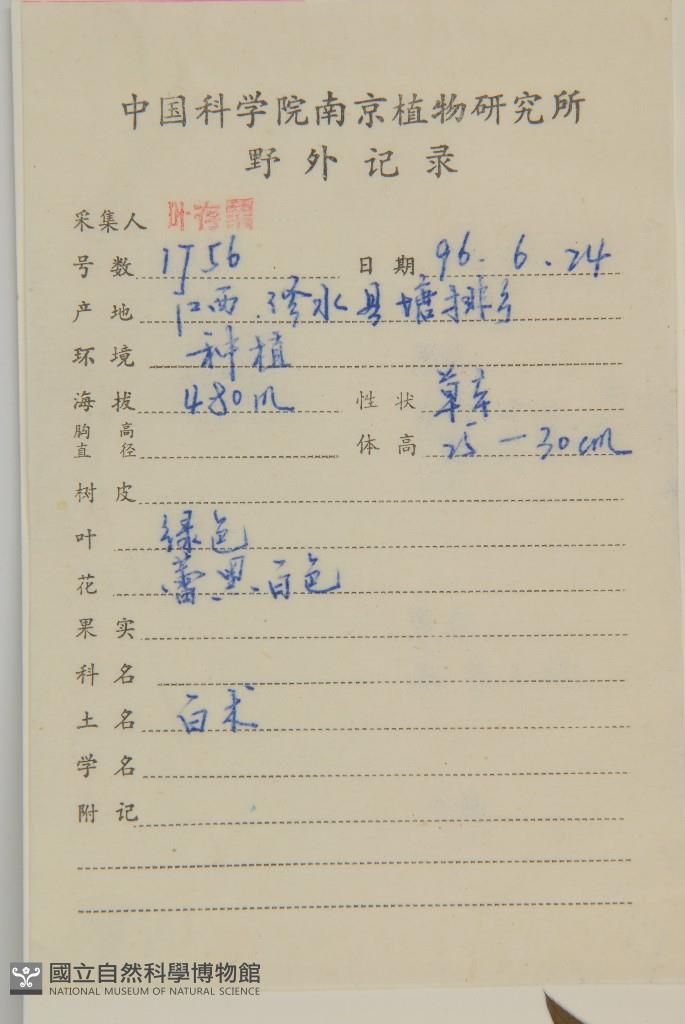 中国科学院南京植物研究所
野外记录
采集人 叶存粟
号数 1756 日期 96.6.24
产地 江西.修水县塘排乡
环境 种植
海拔 480m 性状 草本
胸高直径 体高 25-30cm
树皮
叶 绿色
花 蕾黑.白色
果实
科名
土名 白术
学名
附记
國立自然科學博物館
NATIONAL MUSEUM OF NATURAL SCIENCE